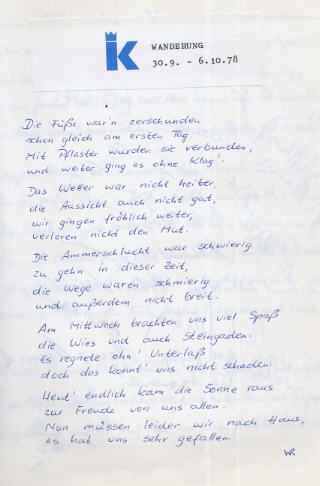 K
WANDERUNG
30.9. - 6.10.78
Die Füße war'n zerschunden
schon gleich am ersten Tag.
Mit Pflaster wurden sie verbunden,
und weiter ging es ohne Klag'.
Das Wetter war nicht heiter,
die Aussicht auch nicht gut,
wir gingen fröhlich weiter,
verloren nicht den Mut.
Die Ammerschlucht war schwierig
zu gehn in dieser Zeit,
die Wege waren schmierig
und außerdem nicht breit.
Am Mittwoch brachten uns viel Spaß
die Wies und auch Steingaden.
Es regnete ohn' Unterlaß
doch das konnt' uns nicht schaden.
Heut' endlich kam die Sonne raus
zur Freude von uns allen.
Nun müssen leider wir nach Haus,
es hat uns sehr gefallen.
WR